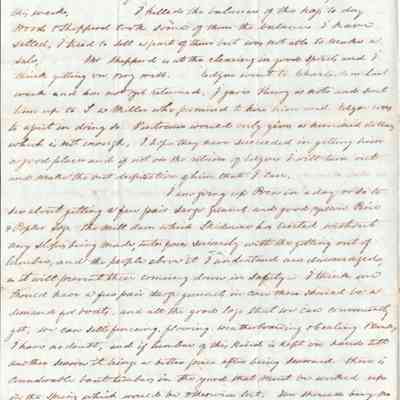 this week, I killed the balance of the hogs to day
Wood & Shepperd took some of them the balance I have
salted, I tried to sell a part of them but was not able to make a
sale, Mr Shepperd is at the clearing in good spirits and I
think getting on very well. Edgar went to Charleston last
week and has not yet returned, I gave Henry a note and sent
him up to J. A. Miller who promised to hire him and Edgar was
to assist in doing so would only give a hundred dollars
which is not enough, I hope they have succeeded in getting him
a good place and if not on the return of Edgar I will turn out
and make the best disposition of him that I can.
I am going up in a day or so to
see about getting a few pair large gunnels and good yellow Pine
& Poplar logs the mill dam which has erected without
any slopes being made, interfere seriously with the getting out of
lumber, and the people above it I understand are discouraged
as it will prevent their coming down in safety. I think we
should have a few pair large gunnels in case there should be a
demand for boats, and all the good logs that we can conveniently
get, we can sell fencing, flooring, weatherboarding &
I have no doubt, and if lumber of this kind is kept on hands till
another season it brings a better price after being seasoned. there is
considerable boat timber in the yard that must be worked up
in the Spring which would be otherwise lost.